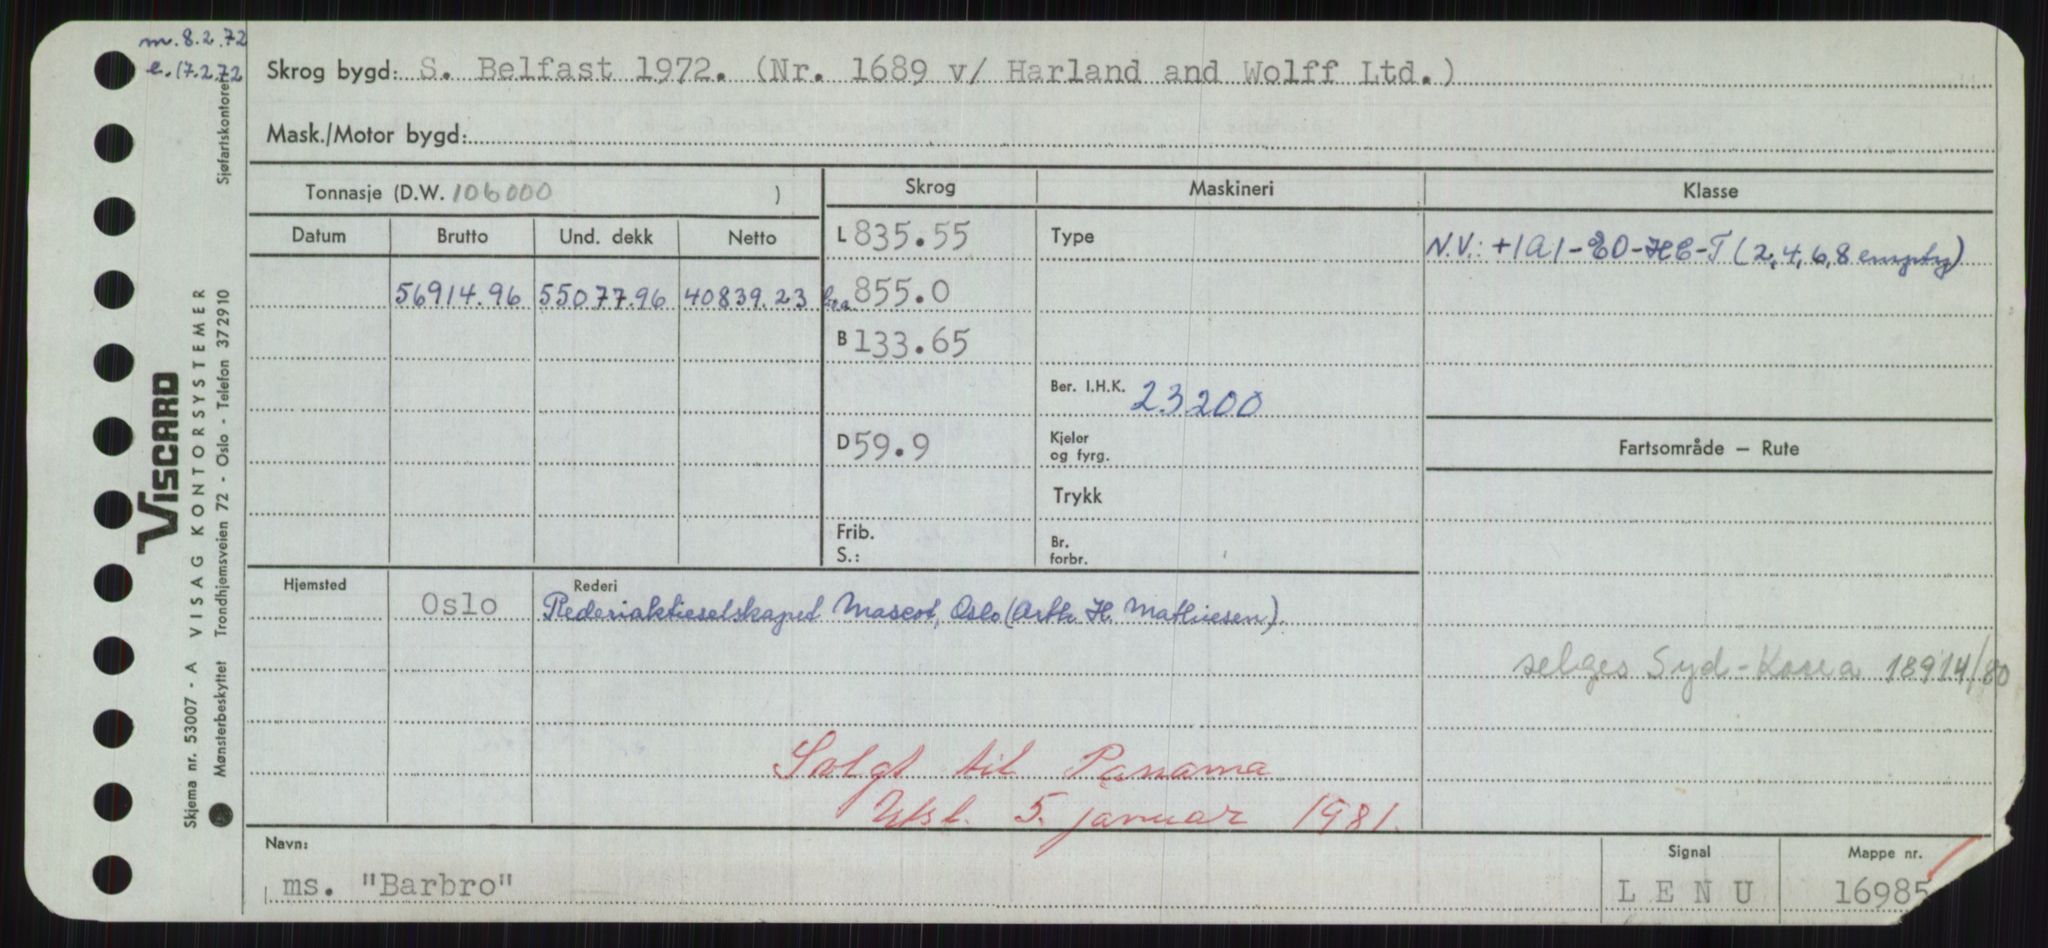 m. 8.2.72
e. 17.2.72
Skrog bygd: S. Belfast 1972. (Nr. 1689 v/ Harland and Wolff Ltd.)
Mask./Motor bygd:
Tonnasje (D.W. 106000 )
Skrog
Maskineri
Klasse
Datum Brutto Und. dekk Netto
L 835.55
Type
N.V.: +1A1-E0-HC-T (2,4,6,8 empty)
56914.96 55077.96 40839.23
855.0
B 133.65
Ber. I.H.K. 23200
D 59.9
Kjeler
og fyrg.
Fartsområde — Rute
Trykk
Frib.
S.:
Br.
forbr.
Hjemsted
Rederi
Oslo
Rederiaktieselskapet Mascot, Oslo (Arth. H. Mathiesen)
selges Syd-Korea 18914/80
Solgt til Panama
Utsl. 5. januar 1981.
Navn:
ms. "Barbro"
Signal
LENU
Mappe nr.
16985
Skjema nr. 53007 - A VISAG KONTORSYSTEMER
VISCARD
Mønsterbeskyttet Trondhjemsveien 72 - Oslo - Telefon 372910
Sjøfartskontoret